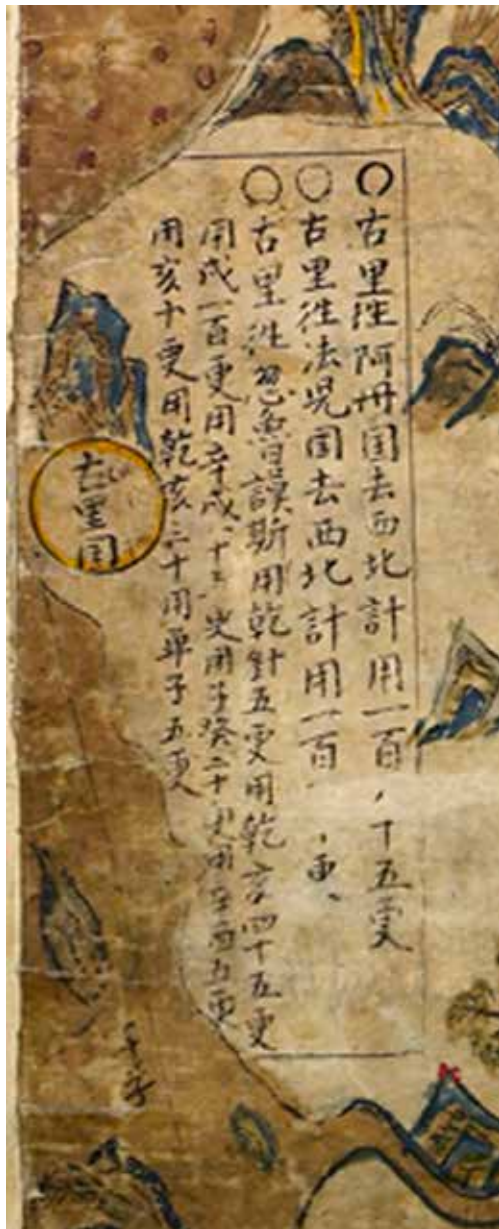 古里往阿丹国去西北計用一百十五更
古里往法兒国去西北計用一百更
古里往忽魯謨斯用乾針五更用乾亥四十五更
用戌一百更用辛戌十更用子癸二十更用辛酉五更
用亥十更用乾亥三十用單子五更
古里国